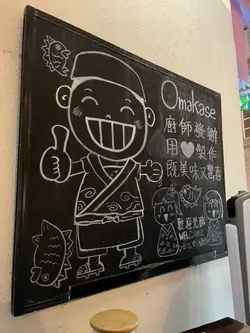 Omakase
廚師發辦
用♡製作
既美味又驚喜
歡迎光臨
WELCOME